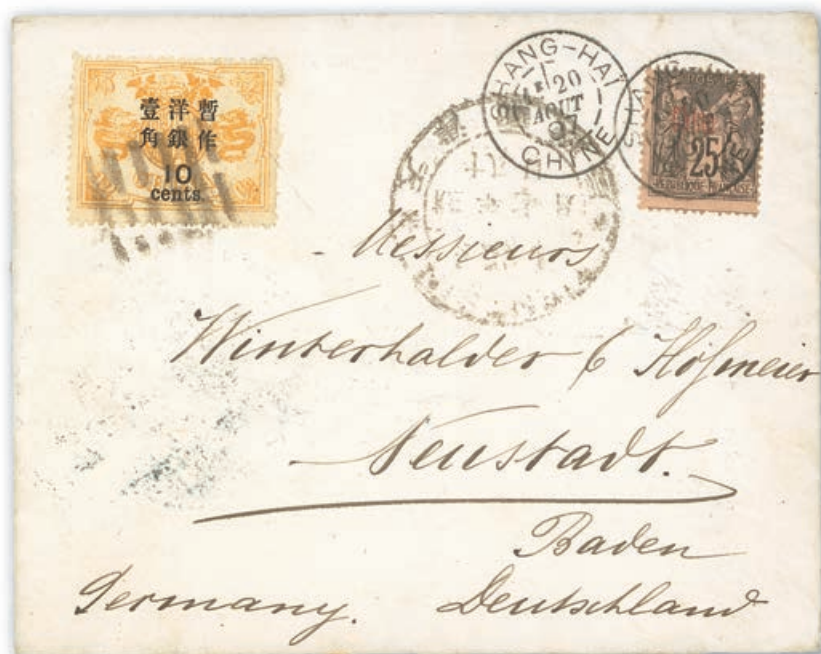 暫作洋銀壹角
10
cents.
SHANG-HAI
20
AOUT
97
CHINE
25
RÉPUBLIQUE FRANÇAISE
Messieurs
Winterhalder & Hofmeier
Neustadt.
Baden
Germany. Deutschland